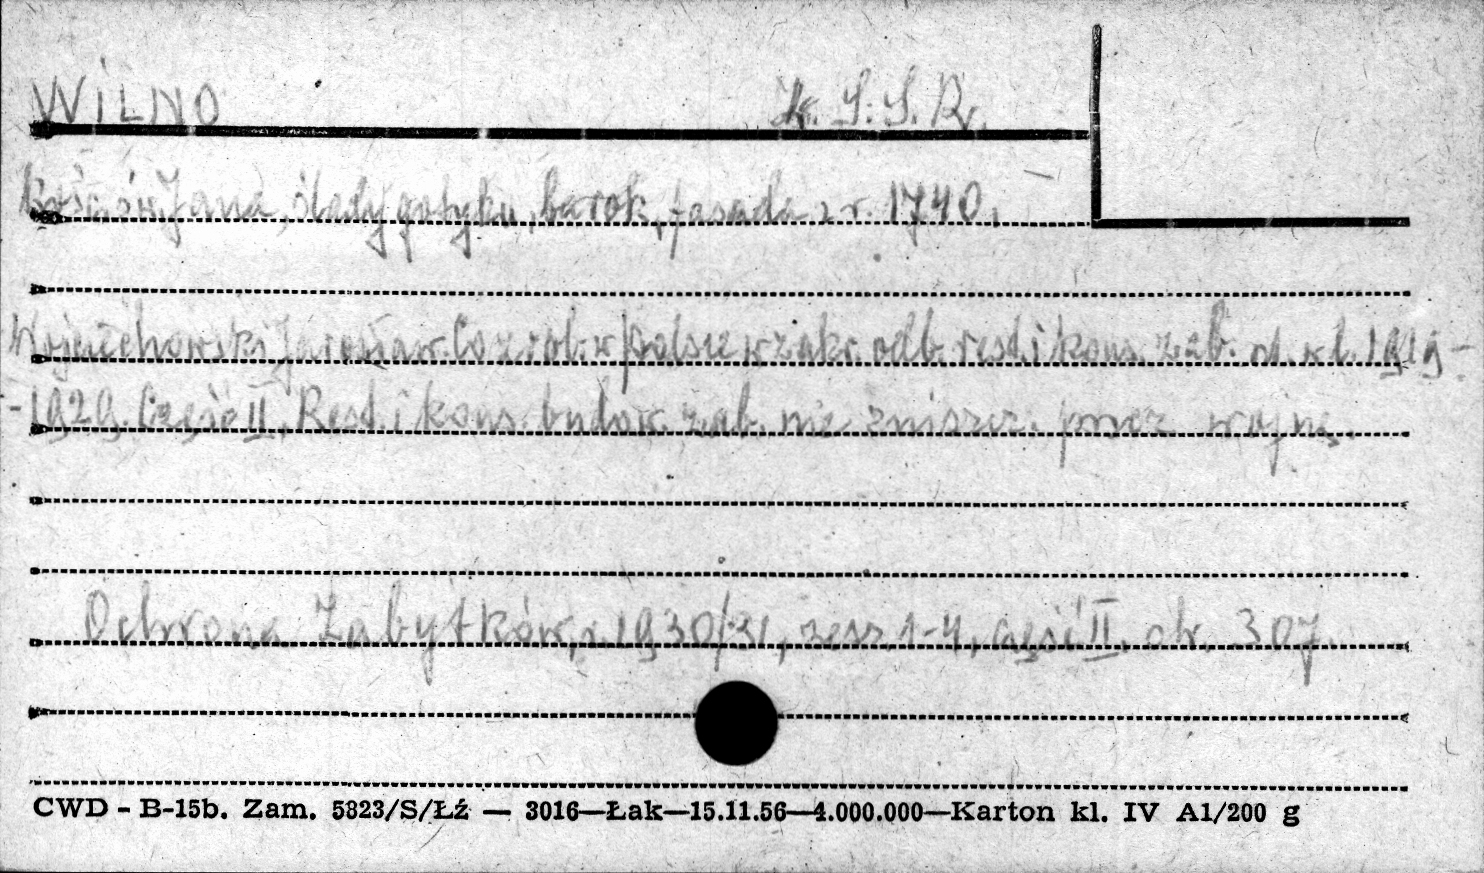 WILNO L. S. S. R.
Kośc. św. Jana, ślady gotyku, barok, fasada z r. 1740.
Wojciechowski Jarosław. Co zrob. w Polsce w zakr. odb. rest. i kons. zab. od. w l. 1919-
-1929. Część II. Rest. i kons. budow. zab. nie zniszcz. przez wojnę.
Ochrona Zabytków, r. 1930/31, zesz. 1-4, część II. str. 307.
CWD - B-15b. Zam. 5823/S/Łź — 3016—Łak—15.11.56—4.000.000—Karton kl. IV A1/200 g